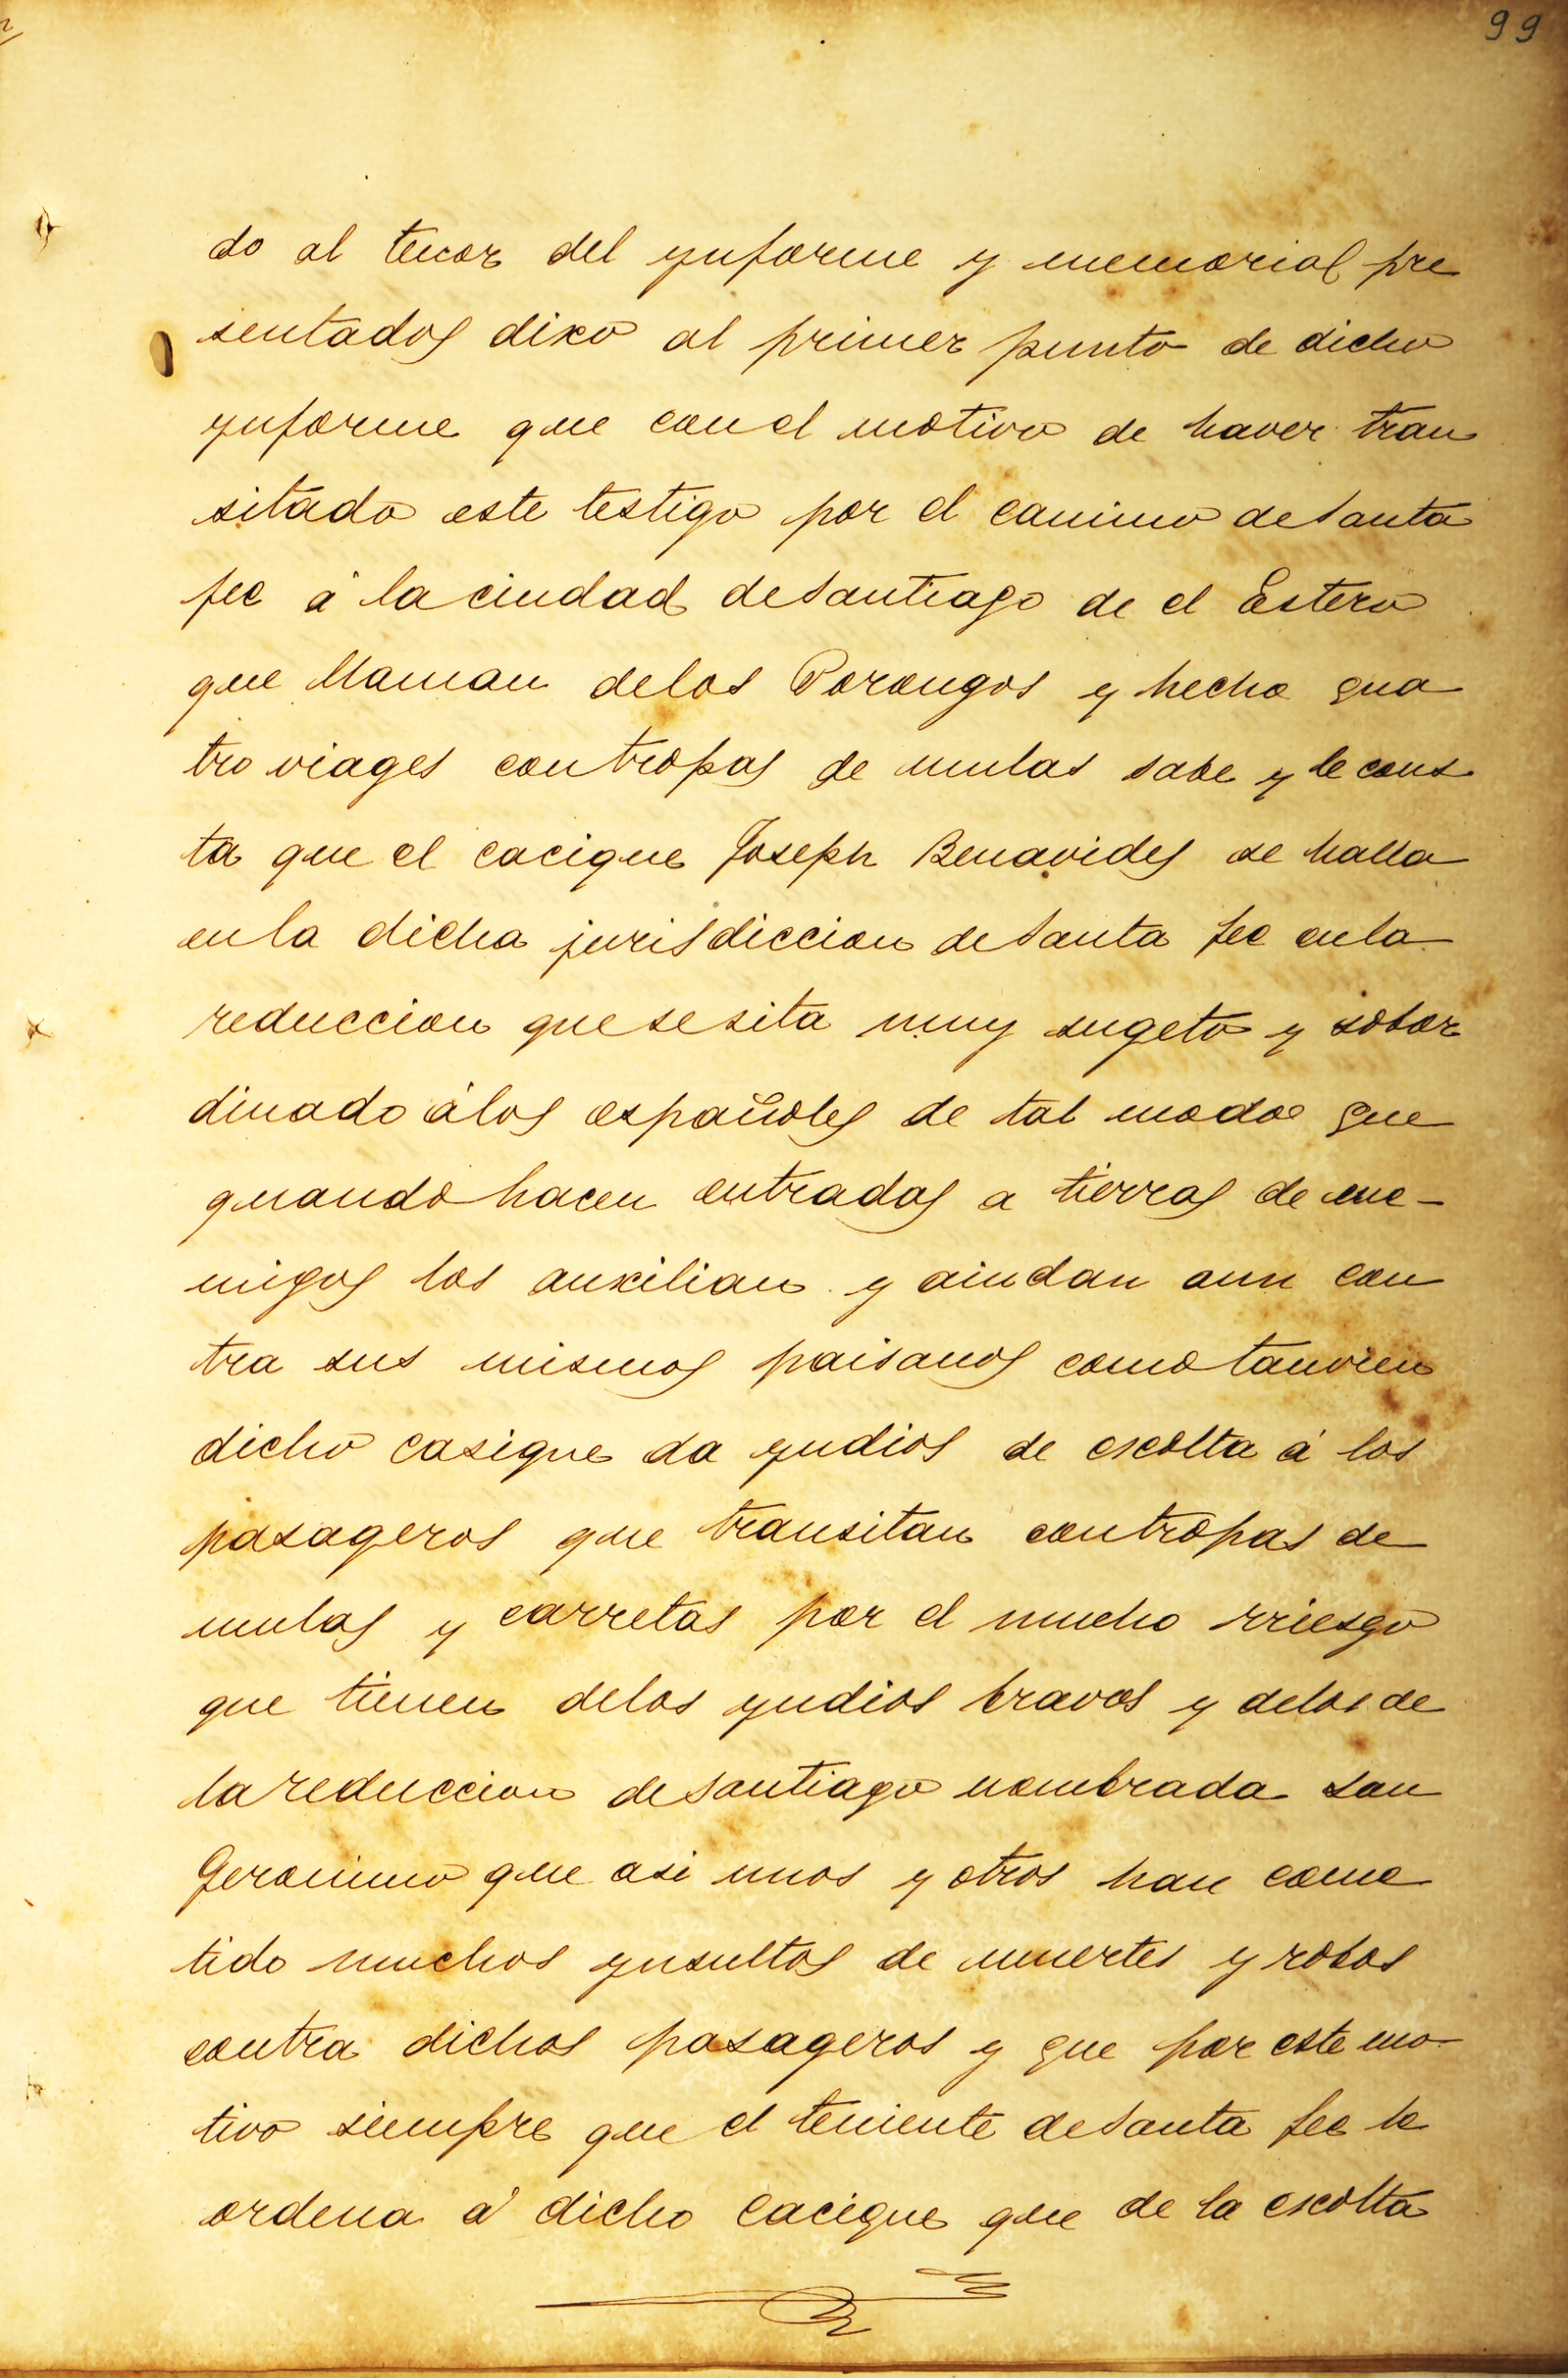 99
do al tenor del ynforme y memorial pre
sentados dixo al primer punto de dicho
ynforme que con el motivo de haver tran
sitado este testigo por el camino de Santa
fee á la ciudad de Santiago de el Estero
que llaman delos Porongos y hecho qua
tro viages con tropas de mulas sabe y le cons
ta que el cacique Joseph Benavides se halla
en la dicha jurisdiccion de Santa fee en la
reduccion que se sita muy sugeto y sobor
dinado á los españoles de tal modo que
quando hacen entradas a tierras de ene-
migos los auxilian y aiudan aun con
tra sus mismos paisanos como tanvien
dicho casique da yndios de escolta á los
pasageros que transitan con tropas de
mulas y carretas por el mucho rriesgo
que tienen delos yndios bravos y delos de
la reduccion de Santiago nombrada San
Geronimo que asi unos y otros han come
tido muchos ynsultos de muertes y robos
contra dichos pasageros y que por este mo-
tivo siempre que el teniente de Santa fee le
ordena á dicho cacique que de la escolta